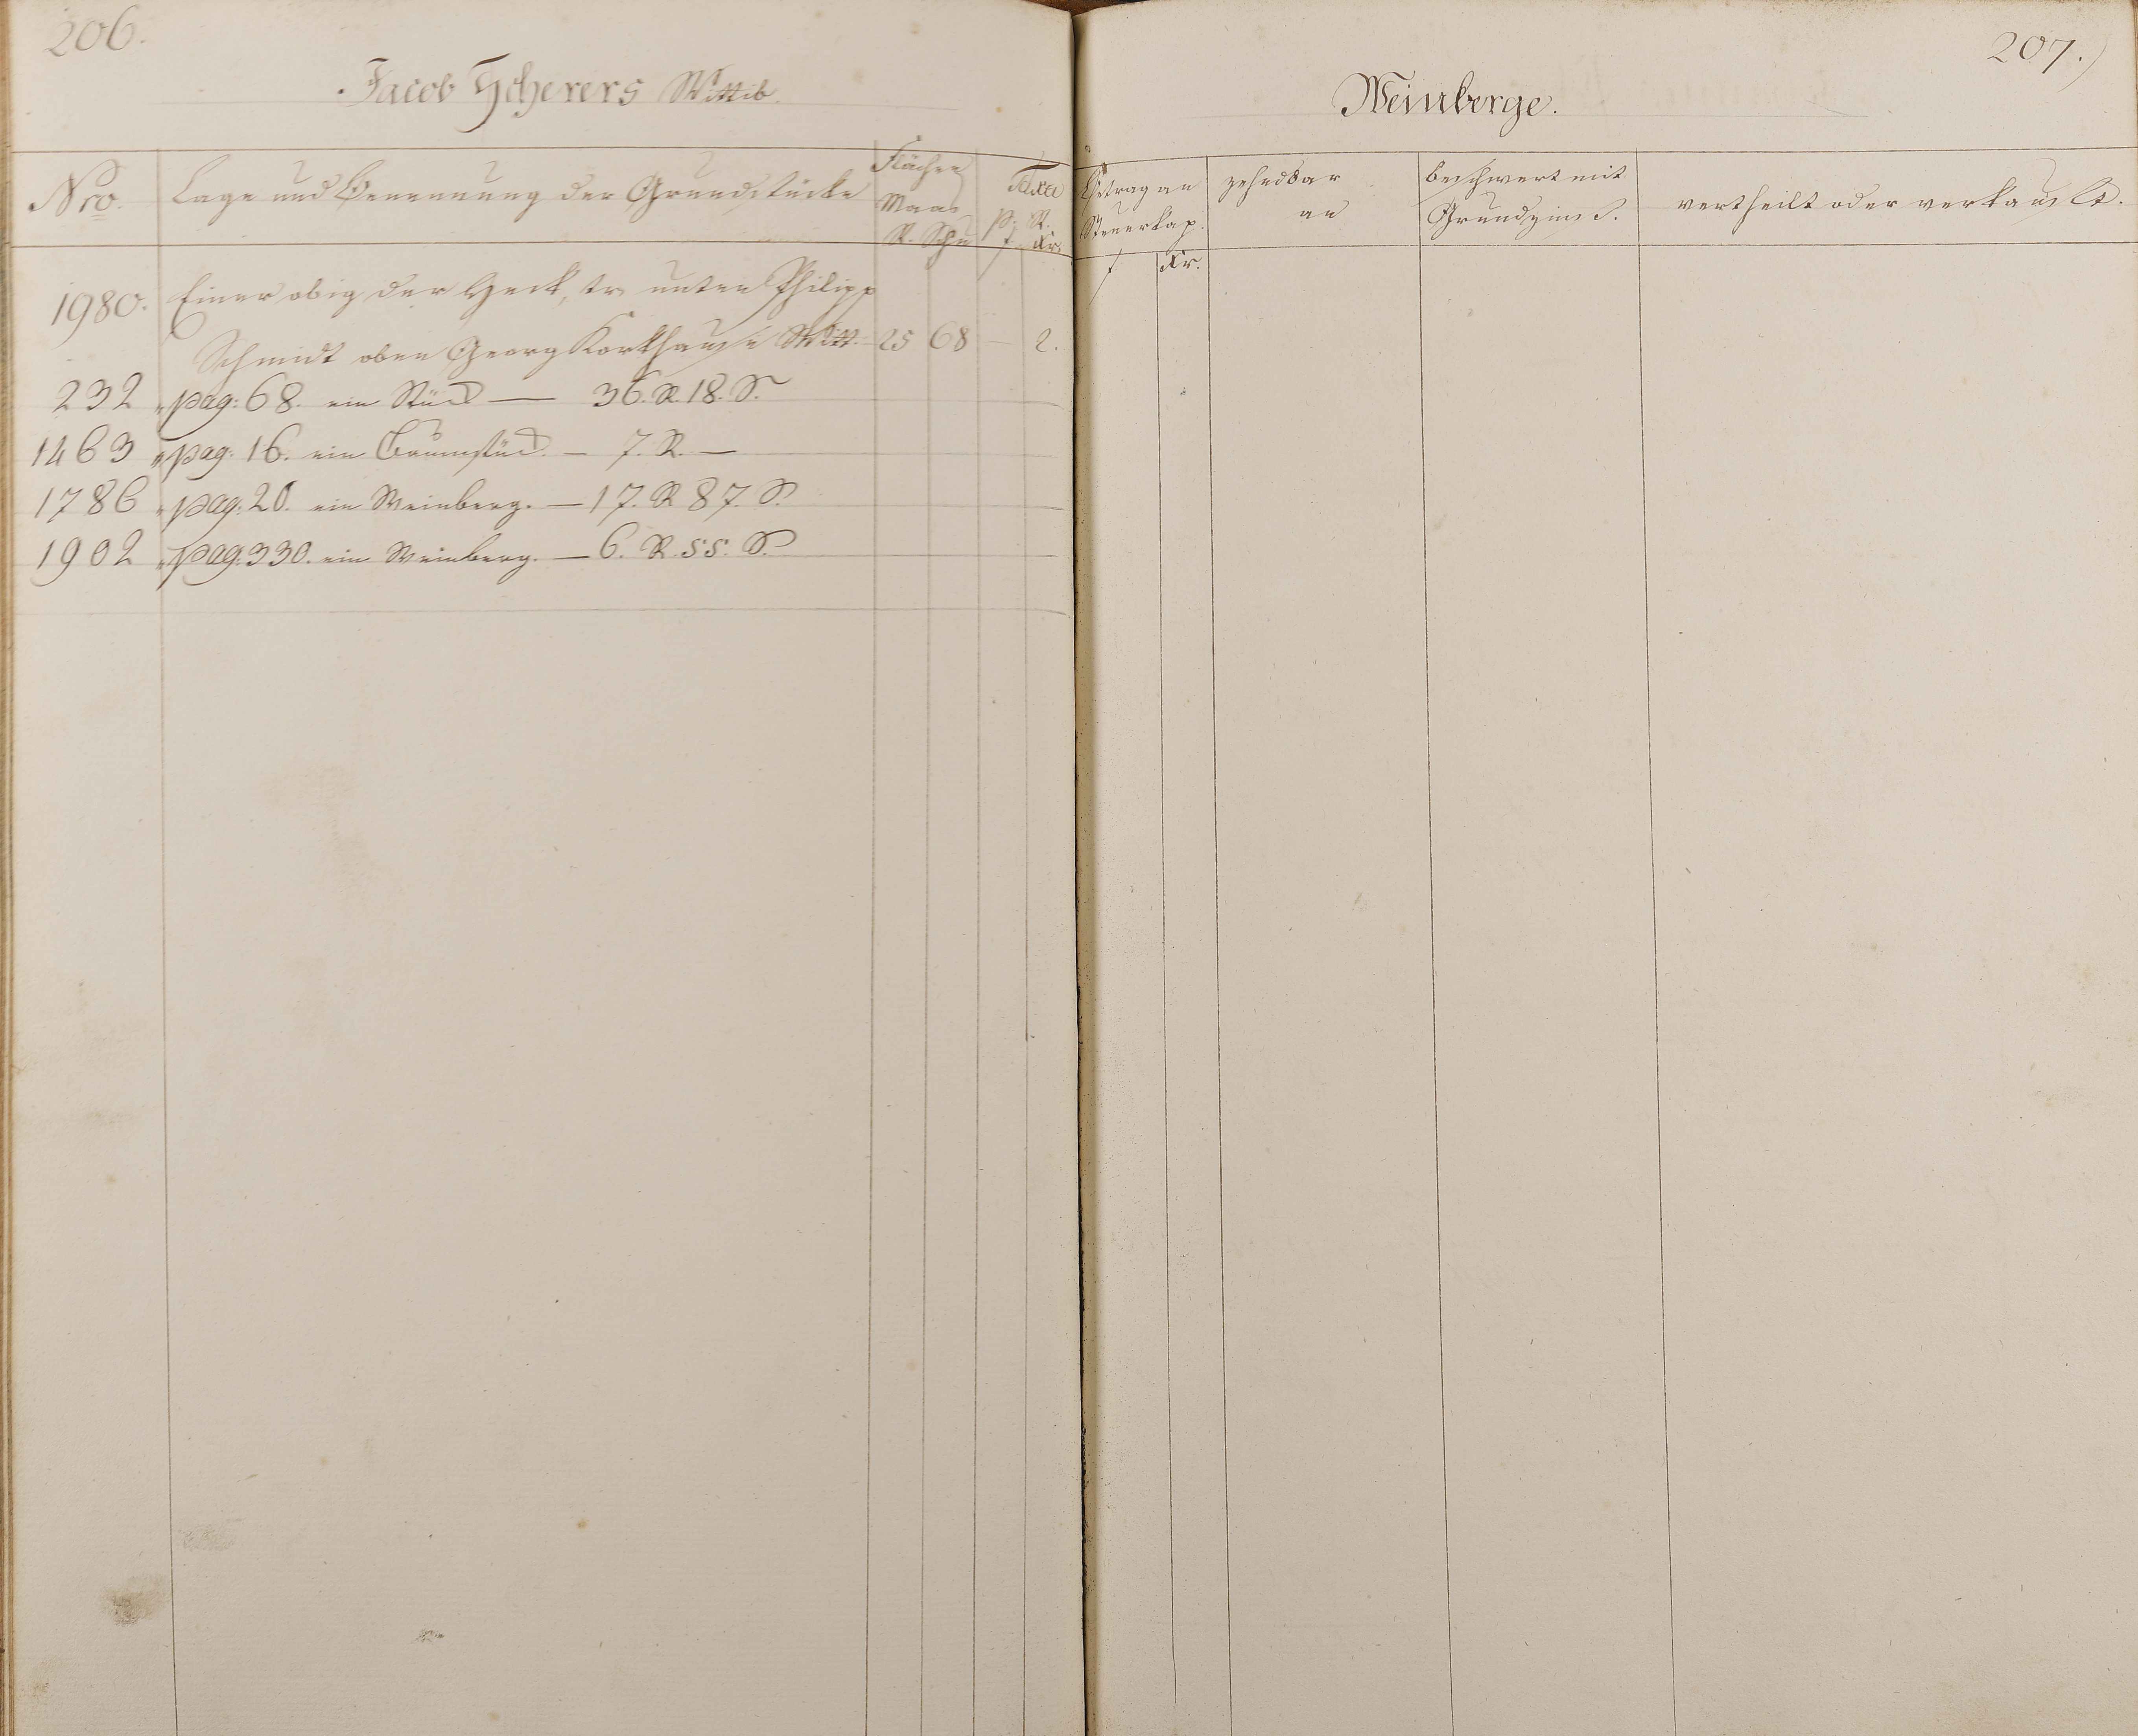 206.
Jacob Scherers Wittib
Nro. Lage und Benennung der Grundstücke Flächen Maas R. Schu Taxa p. R. f Kr.
1980. Einer obig der Heck, tr. unten Philipp
Schmidt oben Georg Korkhauße Witt. 25 68 — 2.
232 pag: 68. ein Stück — 36. R. 18. S.
1463 pag: 16. ein Baumstück. — 7. R. —
1786 pag: 20. ein Weinberg. — 17. R 87. S.
1902 pag. 330. ein Weinberg. — 6. R. 55. S.
207.
Weinberge.
Betrag an Steuerkap. zehndbar an beschwert mit Grundzinß. vertheilt oder verkauft.
f Kr.